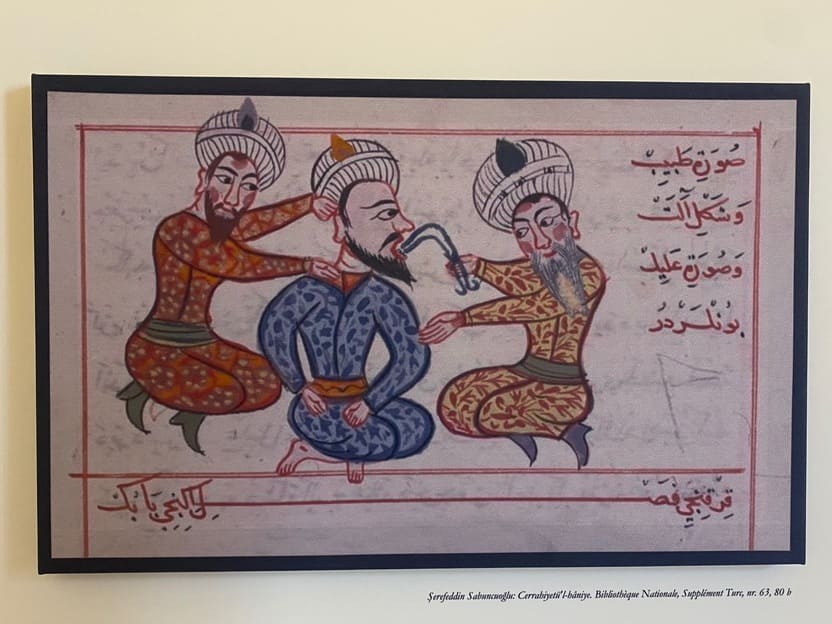 صُورَتِ طَبِيبْ
وَشَكْلِ آلَتْ
وَصُورَتِ عَلِيلْ
بُونْلَرْدُرْ
قِرْقِنْجِي فَصْل اِكِنْجِي بَابُكْ
Şerefeddin Sabuncuoğlu: Cerrahiyetü'l-hâniye. Bibliothèque Nationale, Supplément Turc, nr. 63, 80 b